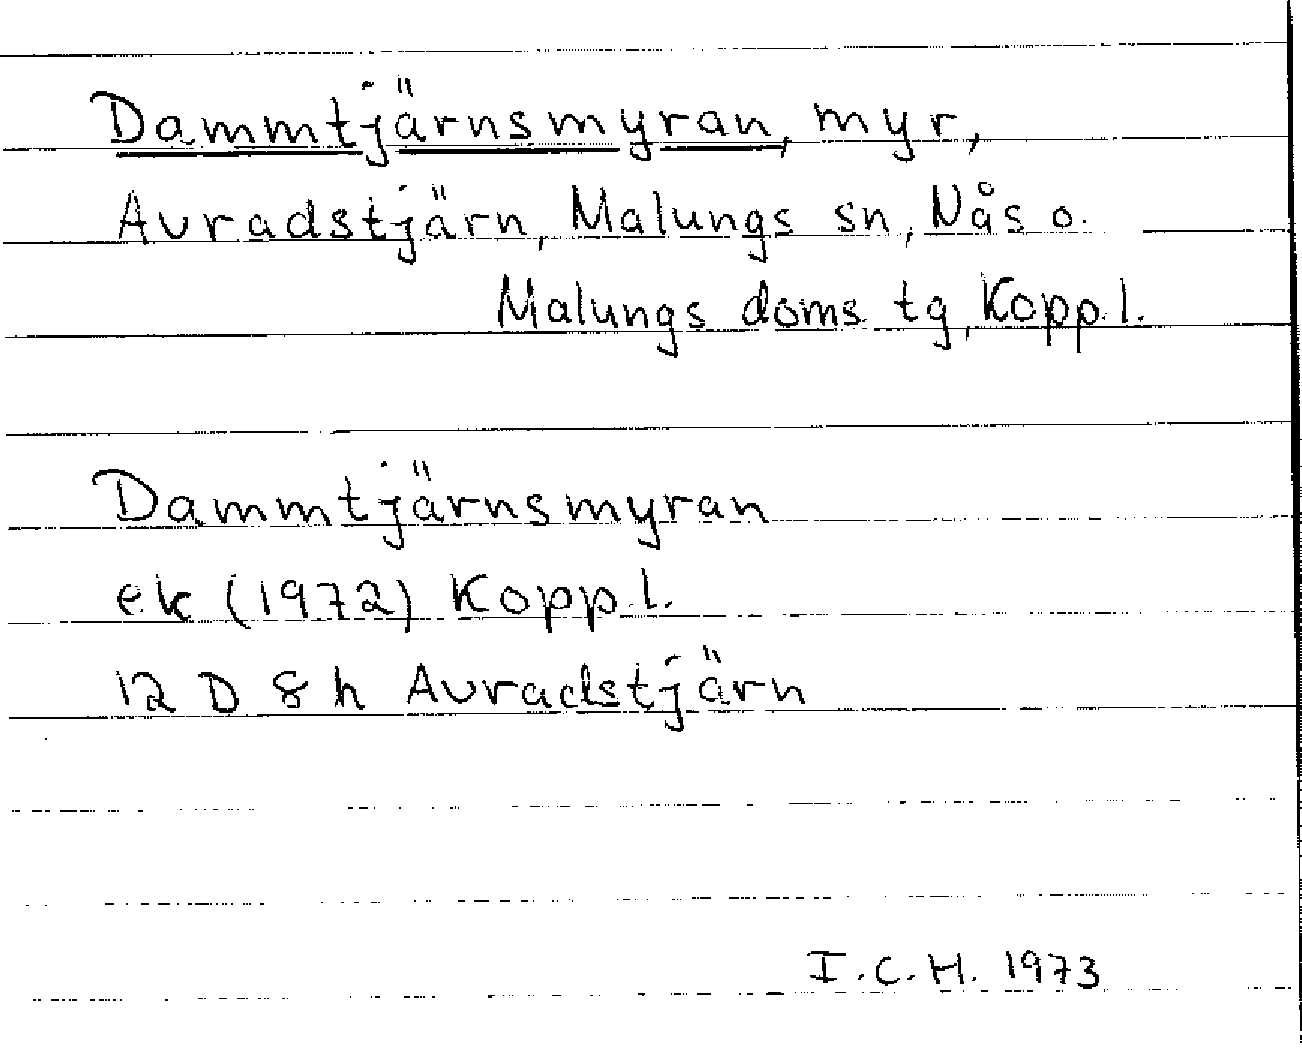 Dammtjärnsmyran, myr,
Avradstjärn, Malungs sn, Nås o.
Malungs doms tg, Kopp.l.
Dammtjärnsmyran
ek (1972) Kopp.l.
12 D 8 h Avradstjärn
I.C.H. 1973